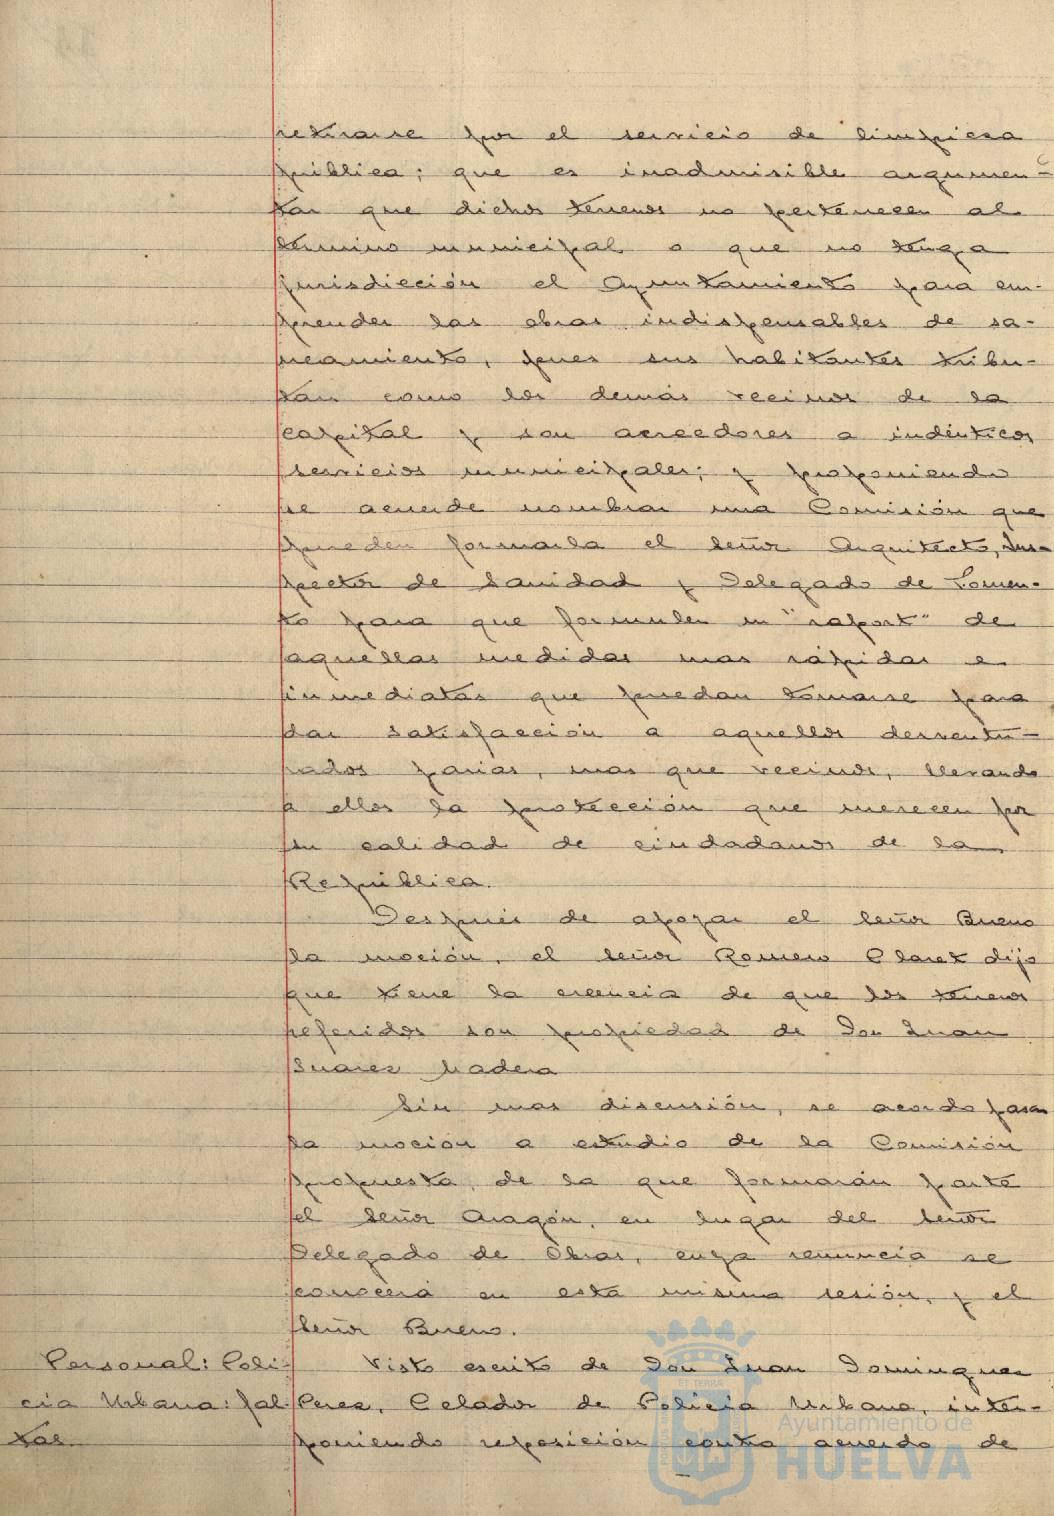 retirarse por el servicio de limpieza
pública; que es inadmisible argumen-
tar que dichos terrenos no pertenecen al
término municipal o que no tenga
jurisdicción el Ayuntamiento para em-
prender las obras indispensables de sa-
neamiento, pues sus habitantes tribu-
tan como los demás vecinos de la
capital y son acreedores a indénticos
servicios municipales; y proponiendo
se acuerde nombrar una Comisión que
pueden formarla el Señor Arquitecto, Ins-
pector de Sanidad y Delegado de Fomen-
to para que formulen un "raport" de
aquellas medidas mas rápidas e
inmediatas que puedan tomarse para
dar satisfacción a aquellos desventu-
rados parias, mas que vecinos, llevando
a ellos la protección que merecen por
su calidad de ciudadanos de la
República.
Después de apoyar el Señor Bueno
la moción, el Señor Romero Claret dijo
que tiene la creencia de que los terrenos
referidos son propiedad de Don Juan
Suarez Nadera
Sin mas discusión, se acordo pasar
la moción a estudio de la Comisión
propuesta, de la que formarán parte
el Señor Aragón, en lugar del Señor
Delegado de Obras, cuya renuncia se
conocerá en esta misma sesión, y el
Señor Bueno.
Personal: Poli-
cia Urbana: fal-
tas.
Visto escrito de Don Juan Dominguez
Perez, Celador de Policia Urbana, inter-
poniendo reposición contra acuerdo de
Ayuntamiento de
HUELVA